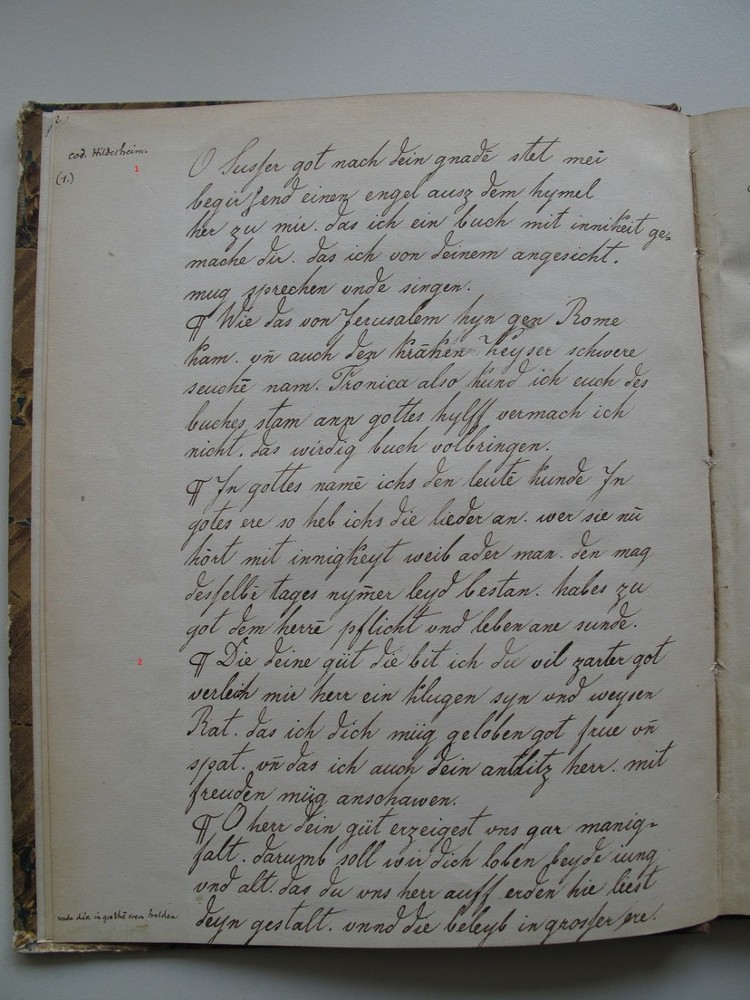 cod. Hildesheim.
(1.)
1
O Susser got nach dein gnadē stet mei
begir send einen engel ausz dem hymel
her zu mir. das ich ein buch mit innikeit ge=
mache dir. das ich von deinem angesicht.
mug sprechen vnde singen.
¶ Wie das von Jerusalem hyn gen Rome
kam. vn̄ auch den krākēn Keyser schwere
seuchē nam. Fronica also kund ich euch des
buches stam ann gottes hylff vermach ich
nicht. das wirdig buch volbringen.
¶ In gottes namē ichs den leutē kunde In
gotes ere so heb ichs die lieder an. wer sie nū
hört mit innigkeyt weib ader man. den mag
desselbē tages nym̄er leyd bestan. habes zu
got dem herrē pflicht vnd leben ane sunde.
2
¶ Die deine güt die bit ich du vil zarter got
verleich mir herr ein klugen syn vnd weysen
Rat. das ich dich müg geloben got frue vn̄
spat. vn̄ das ich auch dein antlitz herr. mit
freuden müg anschawen.
¶ O herr dein güt erzeigest vns gar manig=
falt. darumb soll wir dich loben beyde iung
vnd alt. das du vns herr auff erden hie liest
deyn gestalt. vnnd die beleyb in grosser ere.